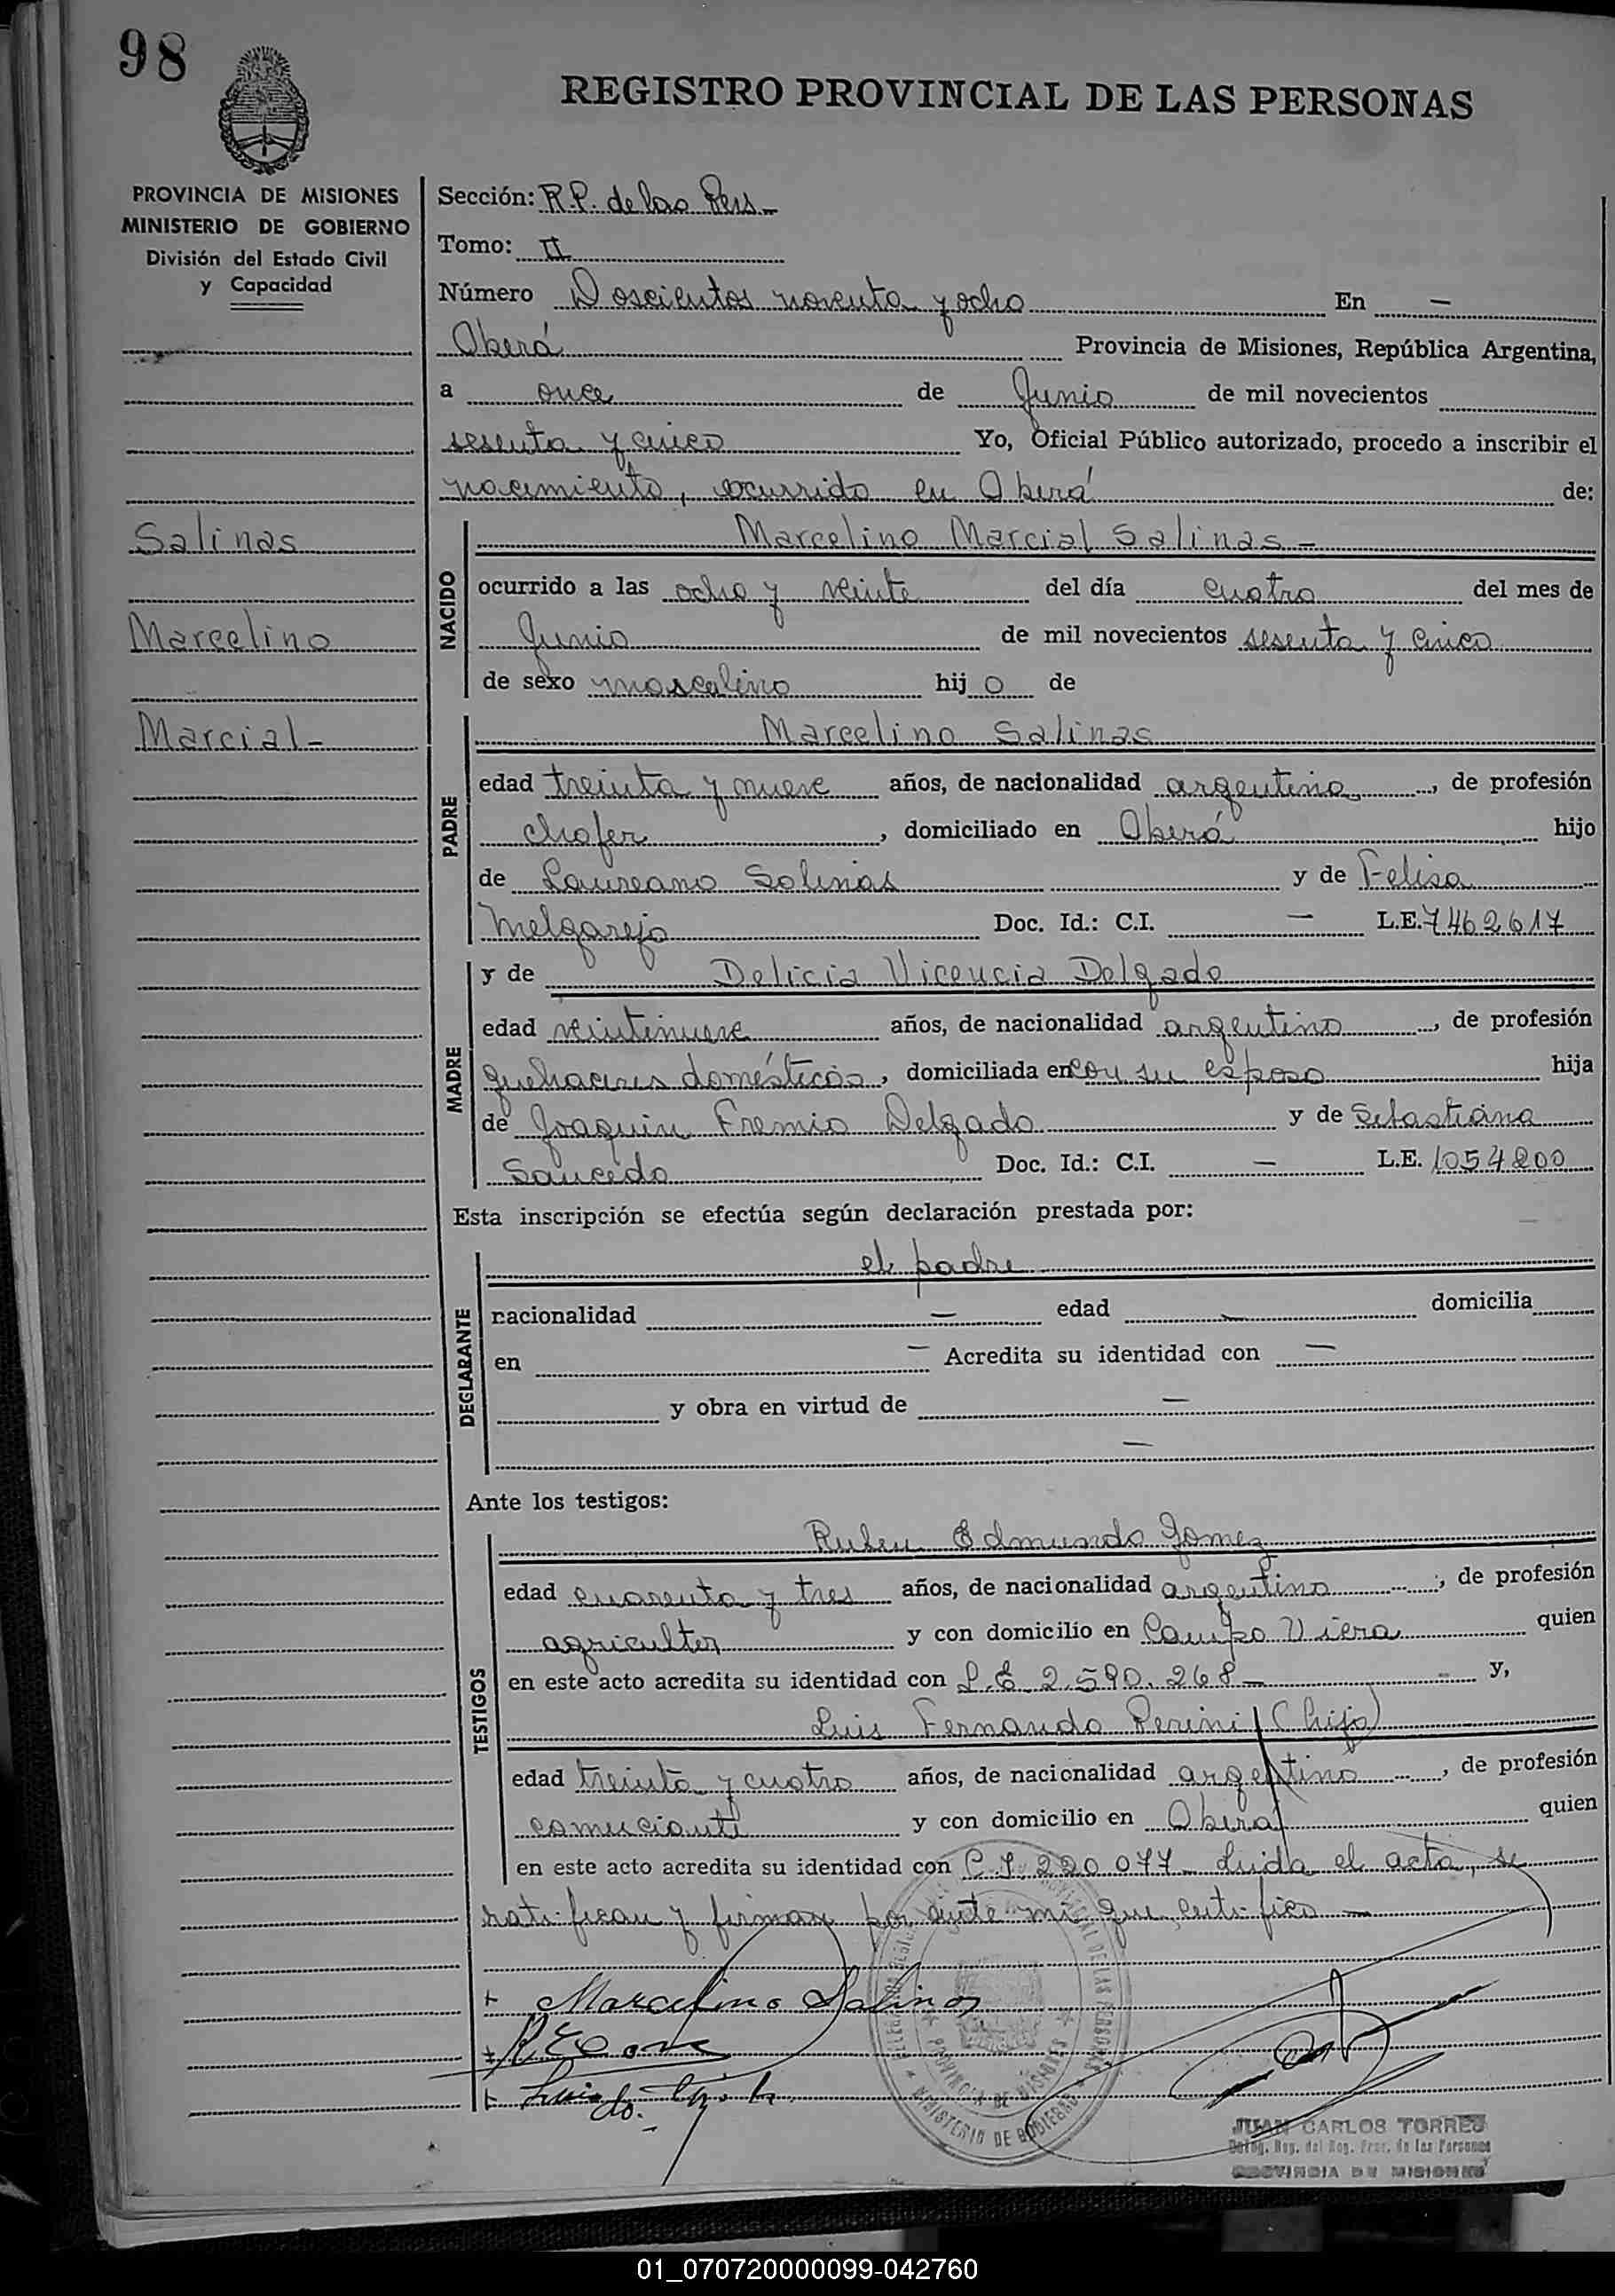 98
REGISTRO PROVINCIAL DE LAS PERSONAS
PROVINCIA DE MISIONES
MINISTERIO DE GOBIERNO
División del Estado Civil
y Capacidad
Salinas
Marcelino
Marcial-
Sección: R.P. de las Pers.-
Tomo: II
Número Doscientos noventa y ocho En -
Oberá Provincia de Misiones, República Argentina,
a once de Junio de mil novecientos
sesenta y cinco Yo, Oficial Público autorizado, procedo a inscribir el
nacimiento, ocurrido en Oberá de:
NACIDO
Marcelino Marcial Salinas-
ocurrido a las ocho y veinte del día cuatro del mes de
Junio de mil novecientos sesenta y cinco
de sexo masculino hijo de
PADRE
Marcelino Salinas
edad treinta y nueve años, de nacionalidad argentina, de profesión
chofer, domiciliado en Oberá hijo
de Laureano Salinas y de Felisa
Melgarejo Doc. Id.: C.I. - L.E. 7462617
MADRE
y de Delicia Vicencia Delgado
edad veintinueve años, de nacionalidad argentina, de profesión
quehaceres domésticos, domiciliada en con su esposo hija
de Joaquin Fremio Delgado y de Sebastiana
Saucedo Doc. Id.: C.I. - L.E. 1054200
Esta inscripción se efectúa según declaración prestada por:
DECLARANTE
el padre
nacionalidad - edad - domicilia
en - Acredita su identidad con -
y obra en virtud de -
-
Ante los testigos:
TESTIGOS
Ruben Edmundo Gomez
edad cuarenta y tres años, de nacionalidad argentino, de profesión
agricultor y con domicilio en Campo Viera quien
en este acto acredita su identidad con L.E. 2.590.268- y,
Luis Fernando Perini (hijo)
edad treinta y cuatro años, de nacionalidad argentino, de profesión
comerciante y con domicilio en Oberá quien
en este acto acredita su identidad con C.I. 220077- Leida el acta, se
ratifican y firman por ante mi que certifico -
Marcelino Salinas
PROVINCIA DE MISIONES
MINISTERIO DE GOBIERNO
JUAN CARLOS TORRES
Deleg. Reg. del Reg. Prov. de las Personas
PROVINCIA DE MISIONES
01_070720000099-042760